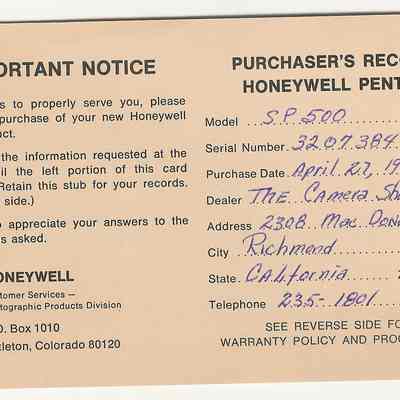 ORTANT NOTICE
s to properly serve you, please
purchase of your new Honeywell
uct.
the information requested at the
il the left portion of this card
Retain this stub for your records.
side.)
o appreciate your answers to the
s asked.
ONEYWELL
tomer Services —
tographic Products Division
O. Box 1010
tleton, Colorado 80120
PURCHASER'S RECO
HONEYWELL PENT
Model S.P. 500
Serial Number 3207384
Purchase Date April 27, 19
Dealer THE Camera Sho
Address 2308 Mac Dona
City Richmond
State California
Telephone 235-1801
SEE REVERSE SIDE FO
WARRANTY POLICY AND PROC